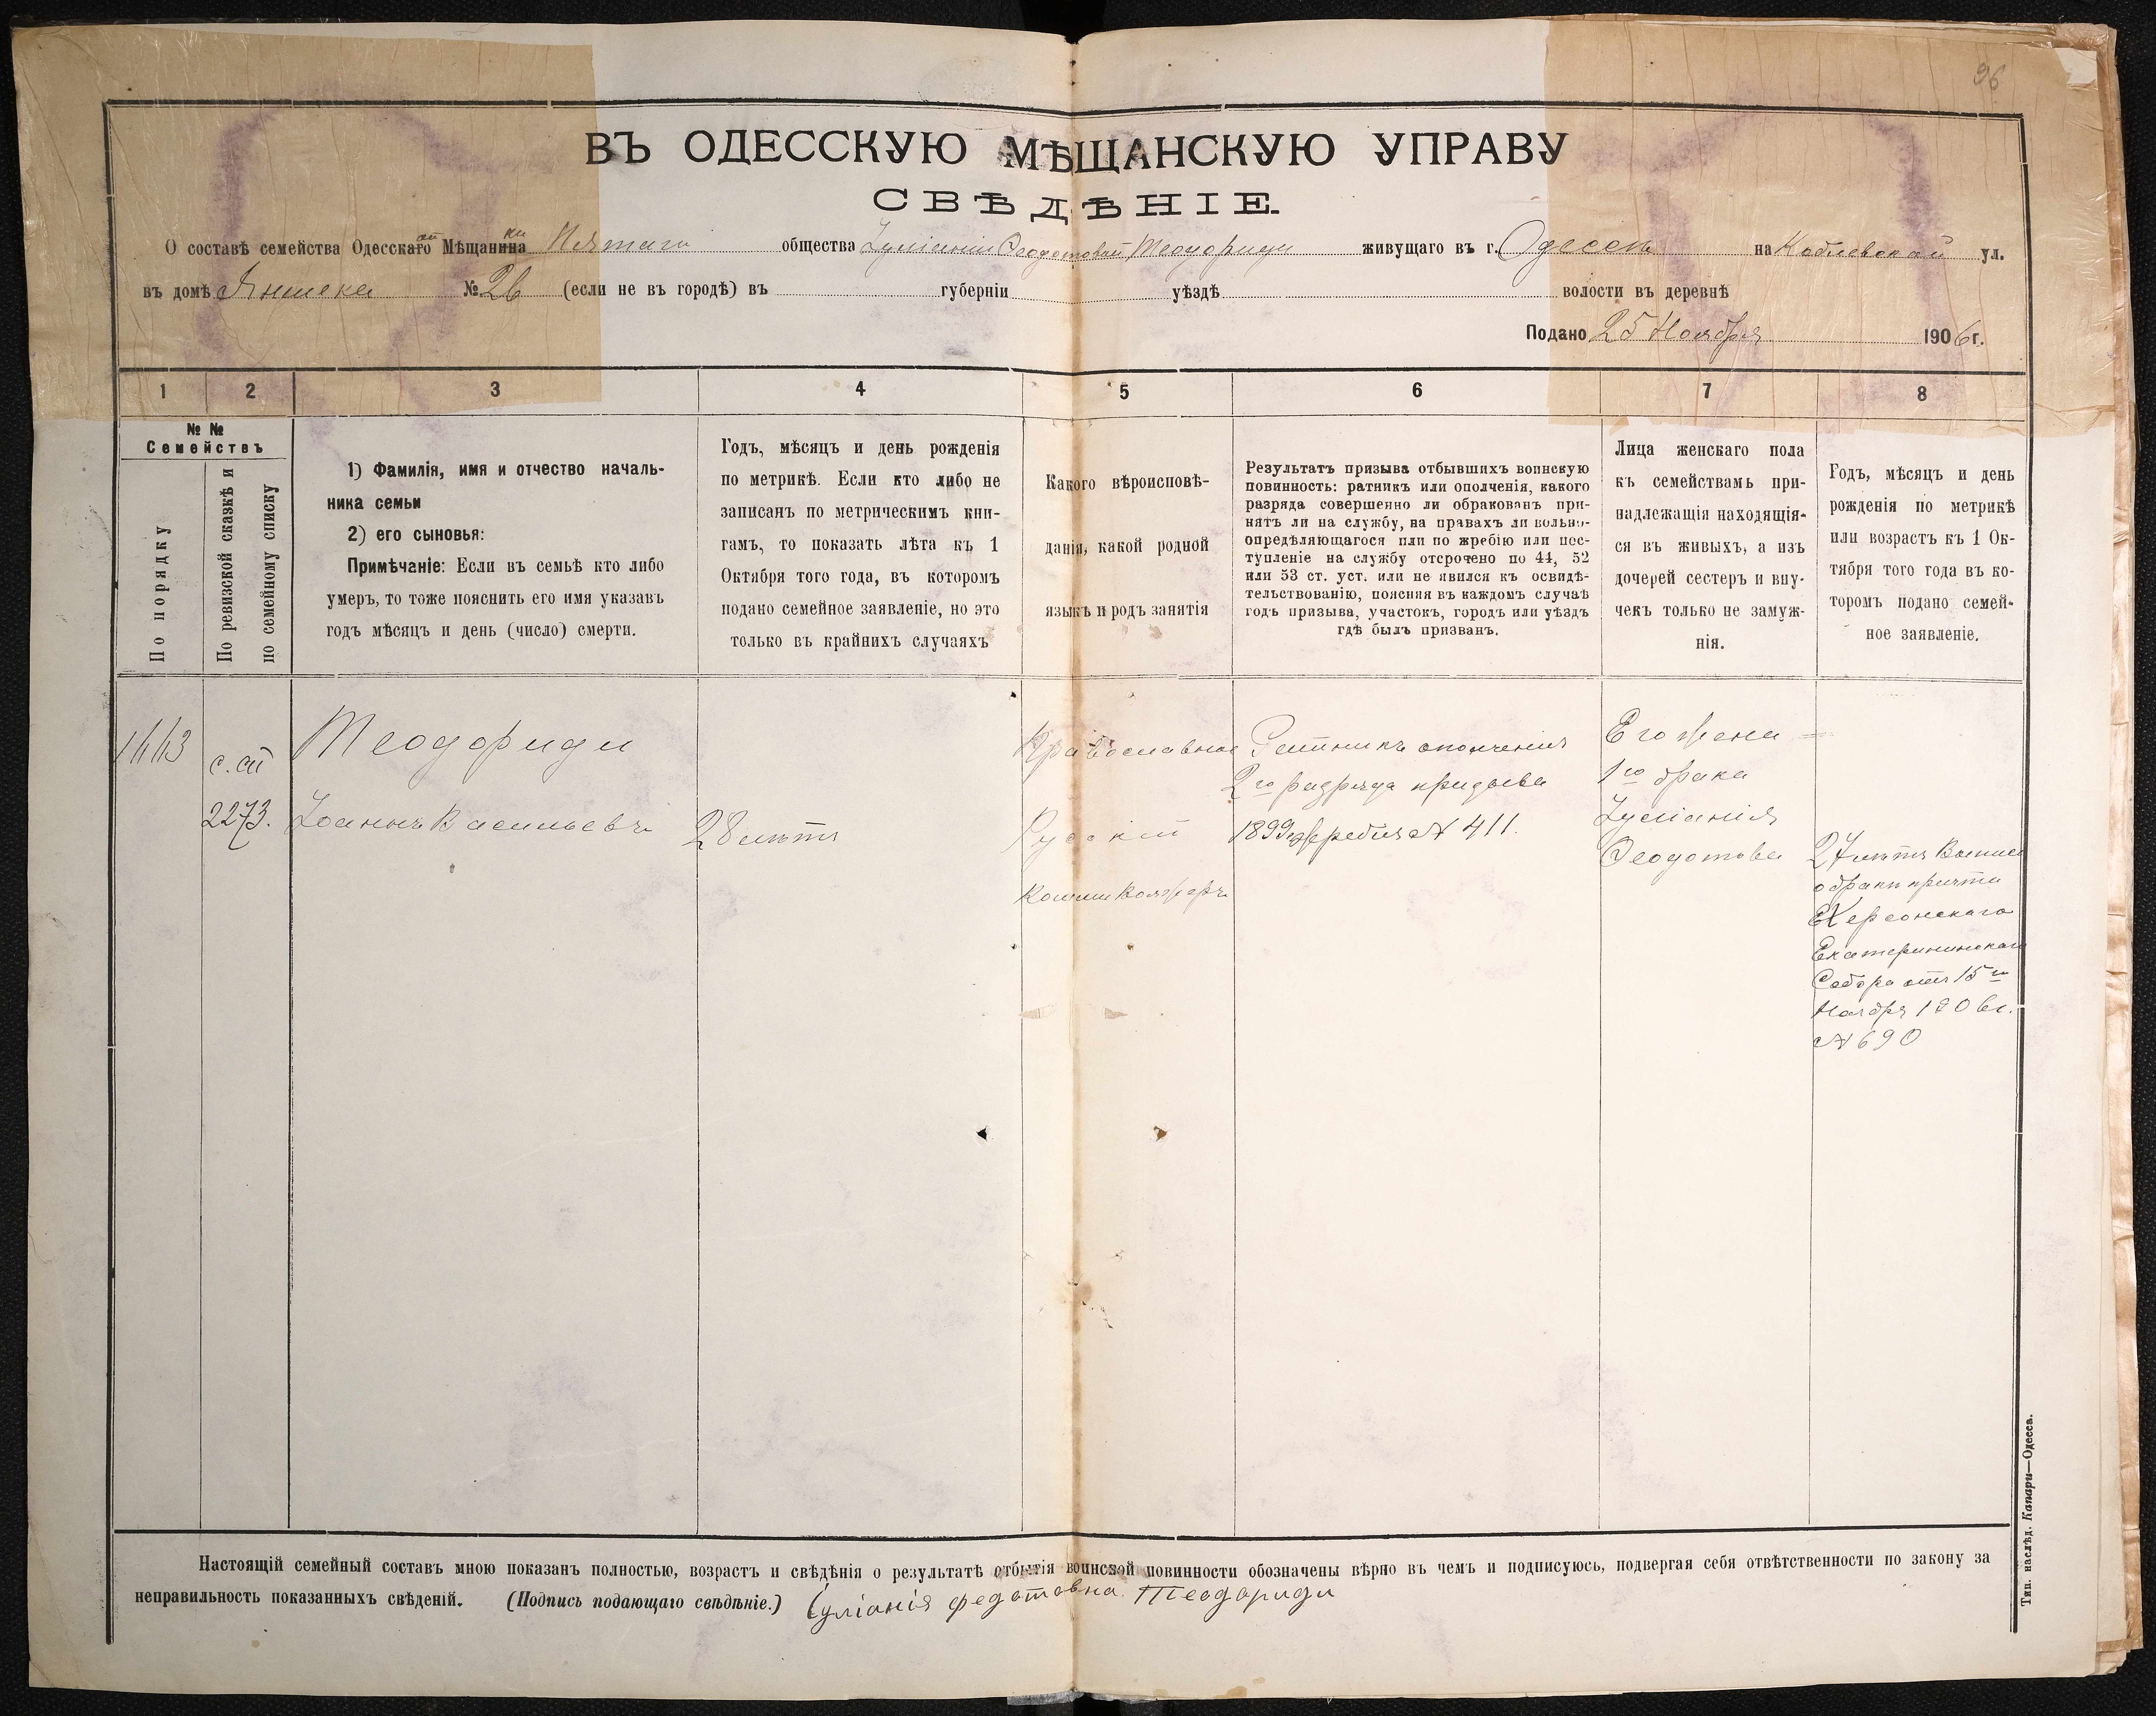 96
ВЪ ОДЕССКУЮ МѢЩАНСКУЮ УПРАВУ
СВѢДѢНІЕ.
О составѣ семейства Одесскаго ой Мѣщанина ки Пятаго общества Іуліаніи Ѳеодотовой Теодориди живущаго въ г. Одессѣ на Коблевской ул.
въ домѣ № 26 (если не въ городѣ) въ губерніи уѣздѣ волости въ деревнѣ
Подано 25 Ноября 1906 г.
1 2 3 4 5 6 7 8
№ №
Семействъ
По порядку
По ревизской сказкѣ и
по семейному списку
1) Фамилія, имя и отчество началь-
ника семьи
2) его сыновья:
Примѣчаніе: Если въ семьѣ кто либо
умеръ, то тоже пояснить его имя указавъ
годъ мѣсяцъ и день (число) смерти.
Годъ, мѣсяцъ и день рожденія
по метрикѣ. Если кто либо не
записанъ по метрическимъ кни-
гамъ, то показать лѣта къ 1
Октября того года, въ которомъ
подано семейное заявленіе, но это
только въ крайнихъ случаяхъ
Какого вѣроисповѣ-
данія, какой родной
языкъ и родъ занятія
Результатъ призыва отбывшихъ воинскую
повинность: ратникъ или ополченія, какого
разряда совершенно ли обракованъ при-
нятъ ли на службу, на правахъ ли вольно-
опредѣляющагося или по жребію или пос-
тупленіе на службу отсрочено по 44, 52
или 53 ст. уст. или не явился къ освидѣ-
тельствованію, поясняя въ каждомъ случаѣ
годъ призыва, участокъ, городъ или уѣздъ
гдѣ былъ призванъ.
Лица женскаго пола
къ семействамъ при-
надлежащія находящія-
ся въ живыхъ, а изъ
дочерей сестеръ и вну-
чекъ только не замуж-
нія.
Годъ, мѣсяцъ и день
рожденія по метрикѣ
или возрастъ къ 1 Ок-
тября того года въ ко-
торомъ подано семей-
ное заявленіе.
1443
с. сп
2273.
Теодориди
Іоаннъ Васильевъ
28 лѣтъ
Православное
Русскій
Ратникъ ополченія
2го разряда призыва
1899 жребія № 411.
Его жена
1го брака
Іуліанія
Ѳеодотова
27 лѣтъ
о бракѣ причта
Херсонскаго
Екатерининскаго
Собора отъ 15го
Ноября 1906 г.
№ 690
Настоящій семейный составъ мною показанъ полностью, возрастъ и свѣдѣнія о результатѣ отбытія воинской повинности обозначены вѣрно въ чемъ и подписуюсь, подвергая себя отвѣтственности по закону за
неправильность показанныхъ свѣденій. (Подпись подающаго свѣдѣніе.) Іуліанія федотовна Теодориди
Тип. наслѣд. Капари—Одесса.